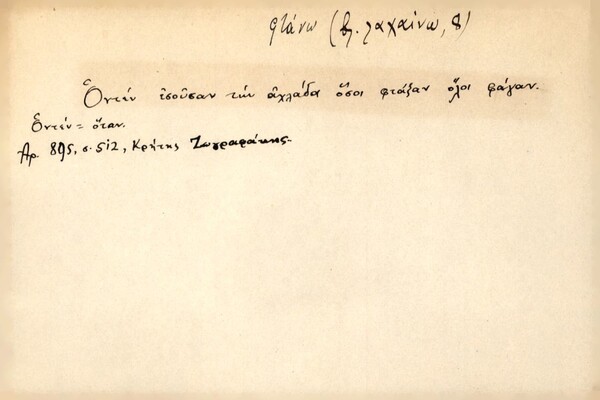 φτάνω (βλ. λαχαίνω, 8)
Ὁντέν ἐσοῦσαν τὴν ἀχλάδα ὅσοι φτάξαν ὅλοι φάγαν.
Ὁντέν = ὅταν.
Ἀρ. 895, σ. 512, Κρήτης Ζωγραφάκης.